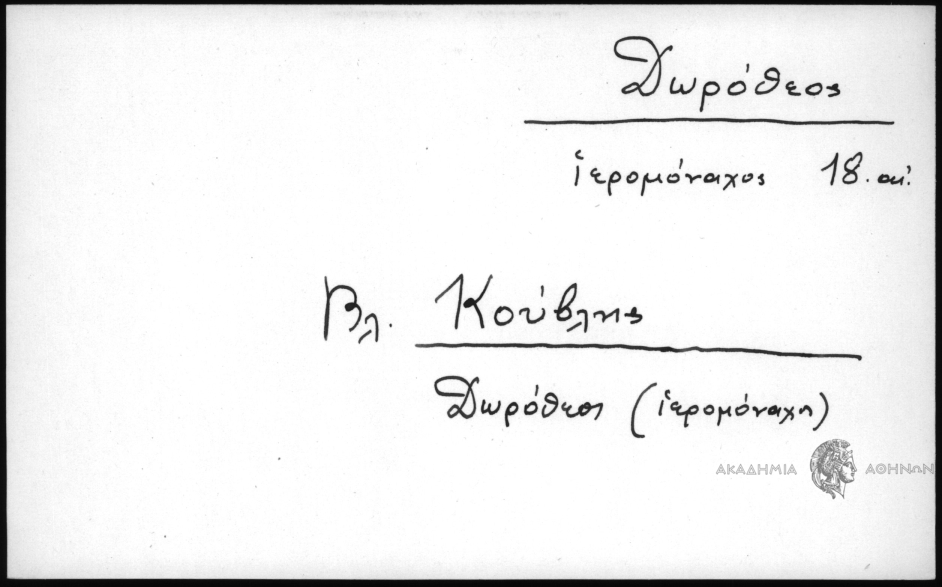 Δωρόθεος
ἱερομόναχος 18. αι.
Βλ. Κούβλης
Δωρόθεος (ἱερομόναχος)
ΑΚΑΔΗΜΙΑ ΑΘΗΝΩΝ